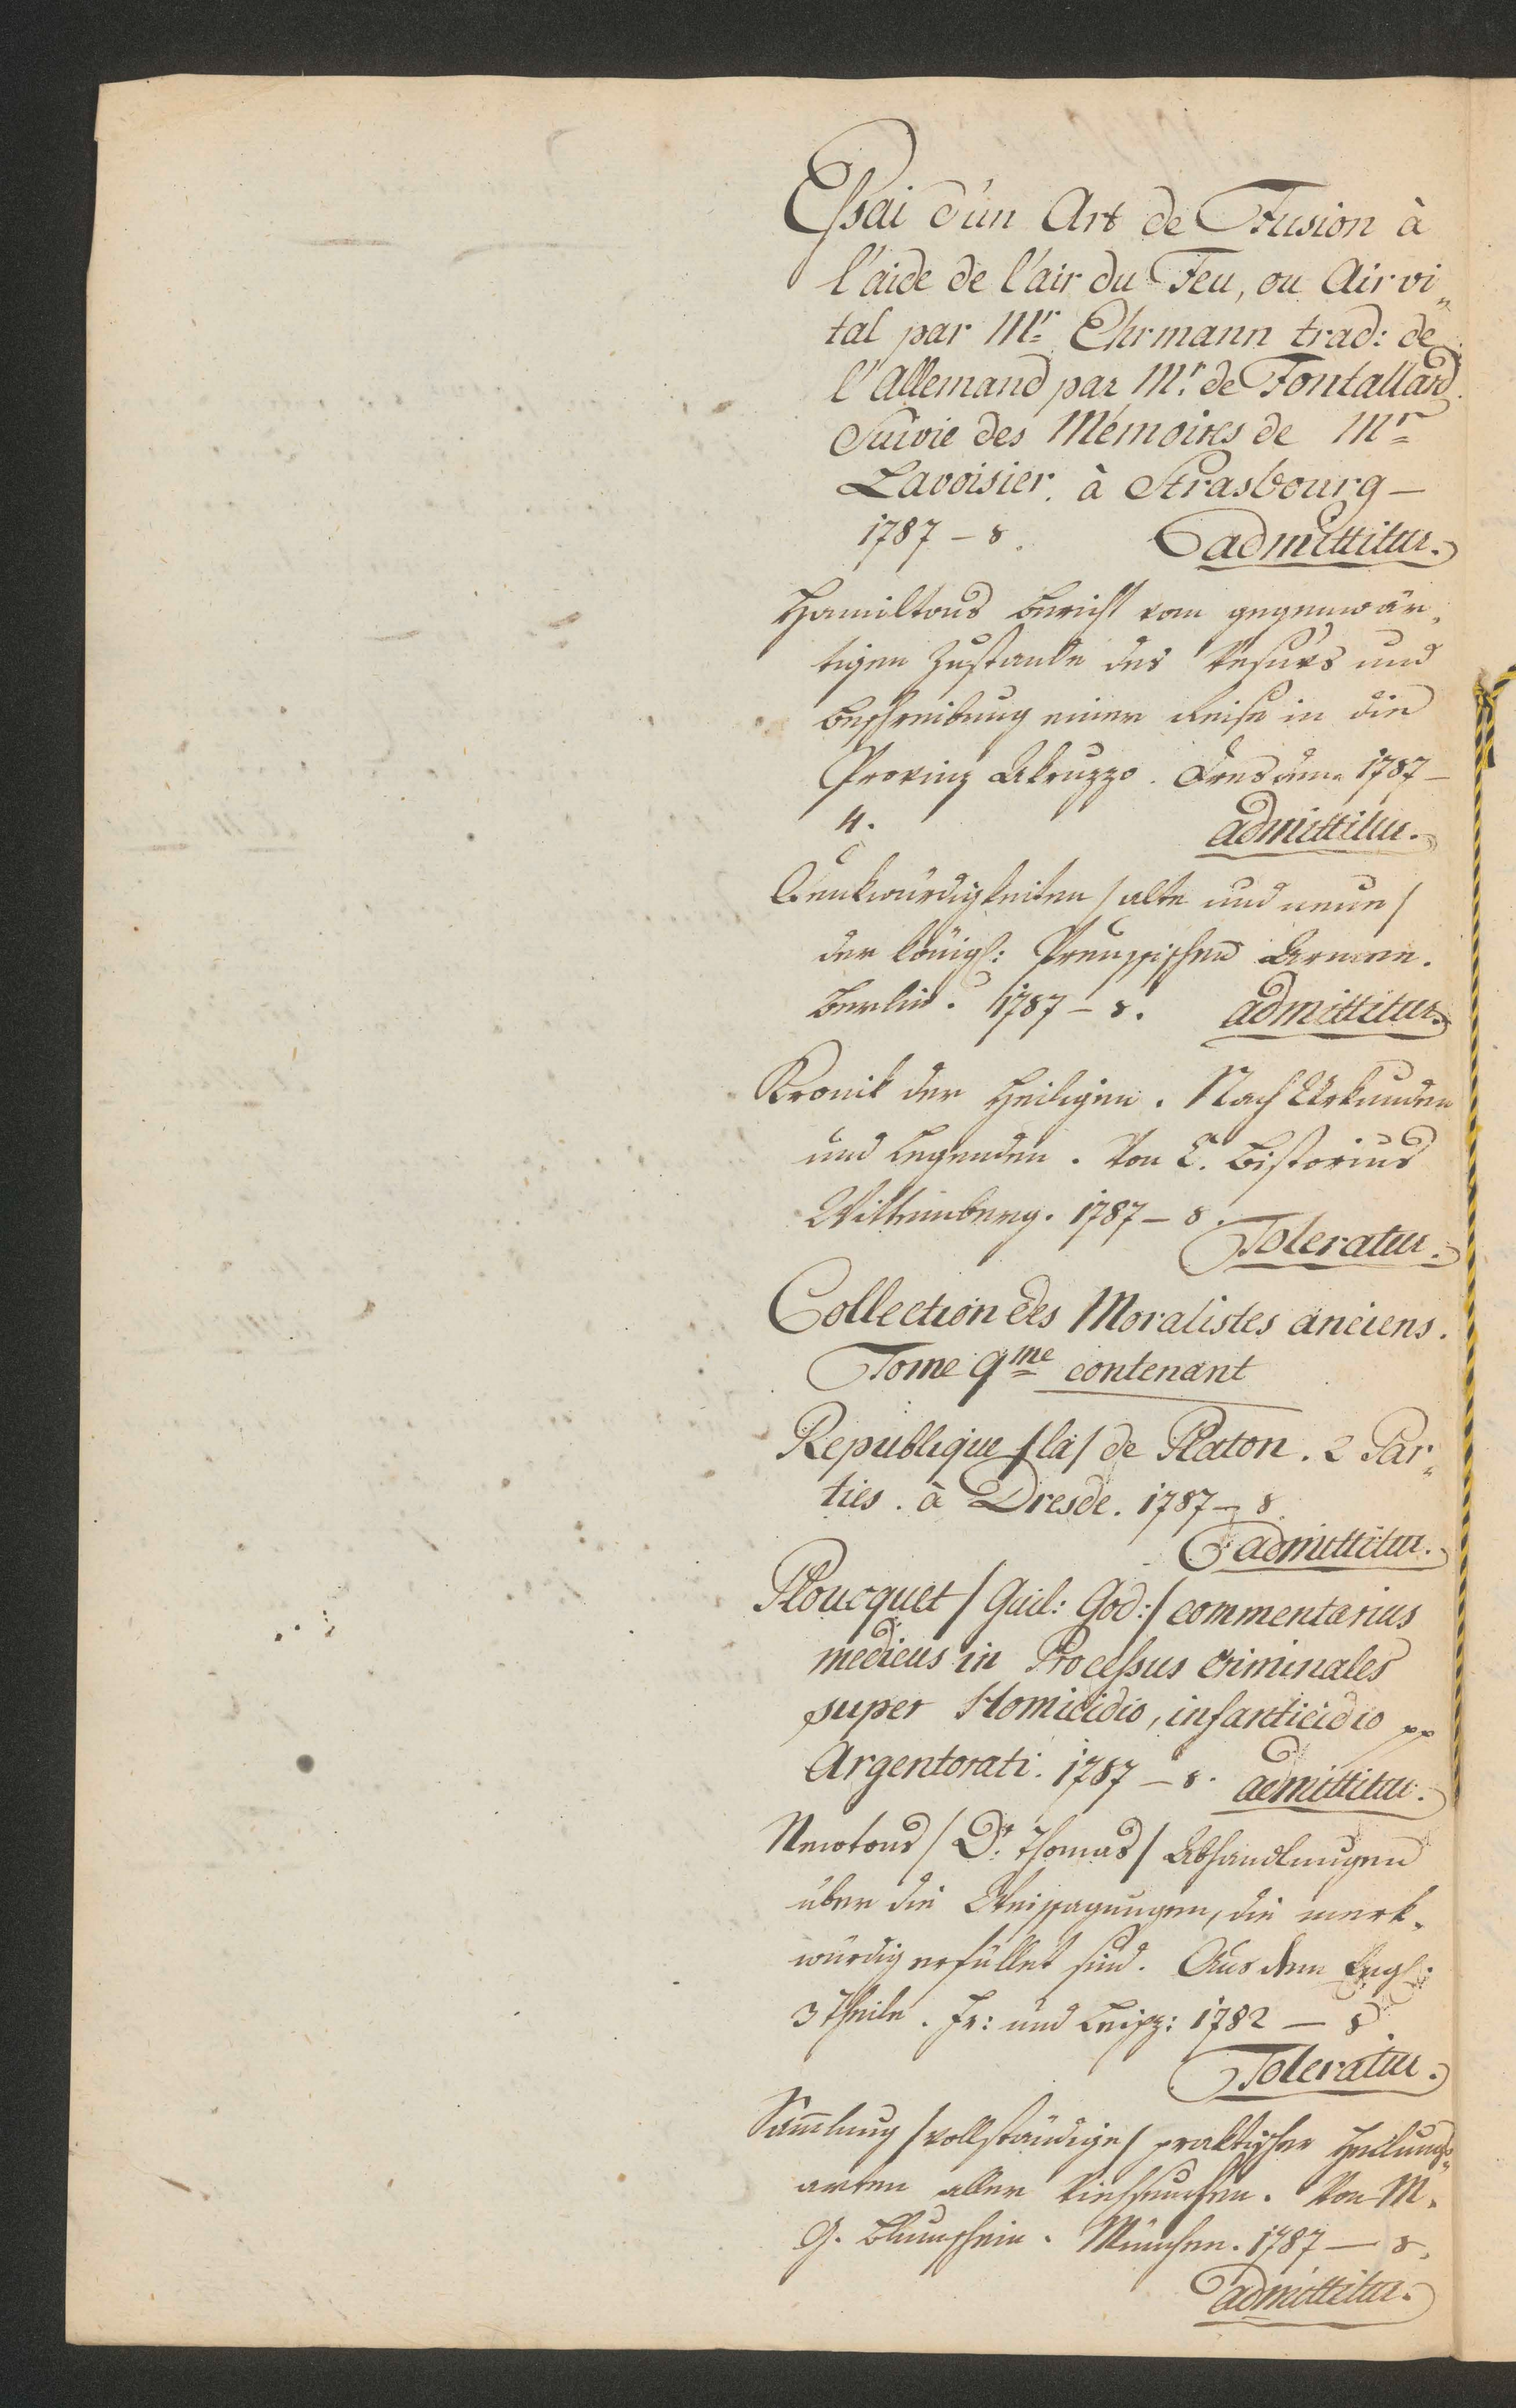 Essai d'un Art de Fusion à
l'aide de l'air du Feu, ou Air vi„
tal par Mr. Ehrmann trad: de
l'Allemand par Mr. de Fontallard.
Suivie des Mémoires de Mr
Lavoisier. à Strasbourg –
1787 – 8.
admittitur.
Hamiltons Bericht vom gegenwär„
tigen Zustande des Vesuvs und
Beschreibung einer Reise in die
Provinz Abruzzo. Dresden 1787 –
4.
admittitur.
Denkwürdigkeiten / alte und neue /
der königl: Preussischen Armee.
Berlin. 1787 – 8. admittitur.
Kronik der Heiligen. Nach Urkunden
und Legenden. Von E. Bistorius
Wittemberg. 1787 – 8.
Toleratur.
Collection des Moralistes anciens.
Tome 9me contenant
Republique / la / de Platon. 2 Par„
ties. à Dresde. 1787 – 8.
admittitur.
Ploucquet / Guil: God: / commentarius
medicus in Processus criminales
super Homicidio, infanticidio pp
Argentorati. 1787 – 8. admittitur.
Newtons / Dr. Thomas / Abhandlungen
über die Weissagungen, die merk„
würdig erfüllet sind. Aus dem Engl:
3 Theile. Fr: und Leipz: 1782 – 8.
Toleratur.
Sammlung / vollständige / praktischer Heilungs„
arten aller Viehseuchen. Von M.
G. München. 1787 – 8.
admittitur.